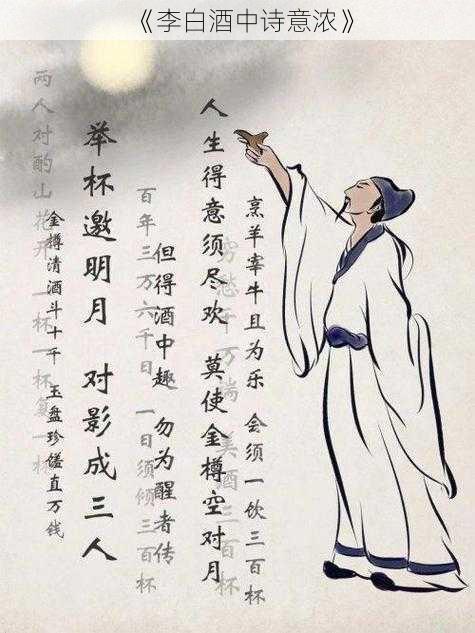 《李白酒中诗意浓》
烹羊宰牛且为乐 会须一饮三百杯
穷愁千万端 美酒三百杯
人生得意须尽欢 莫使金樽空对月
但得酒中趣 勿为醒者传
百年三万六千日 一日须倾三百杯
举杯邀明月 对影成三人
金樽清酒斗十千 玉盘珍馐直万钱
两人对酌山花开 一杯一杯复一杯